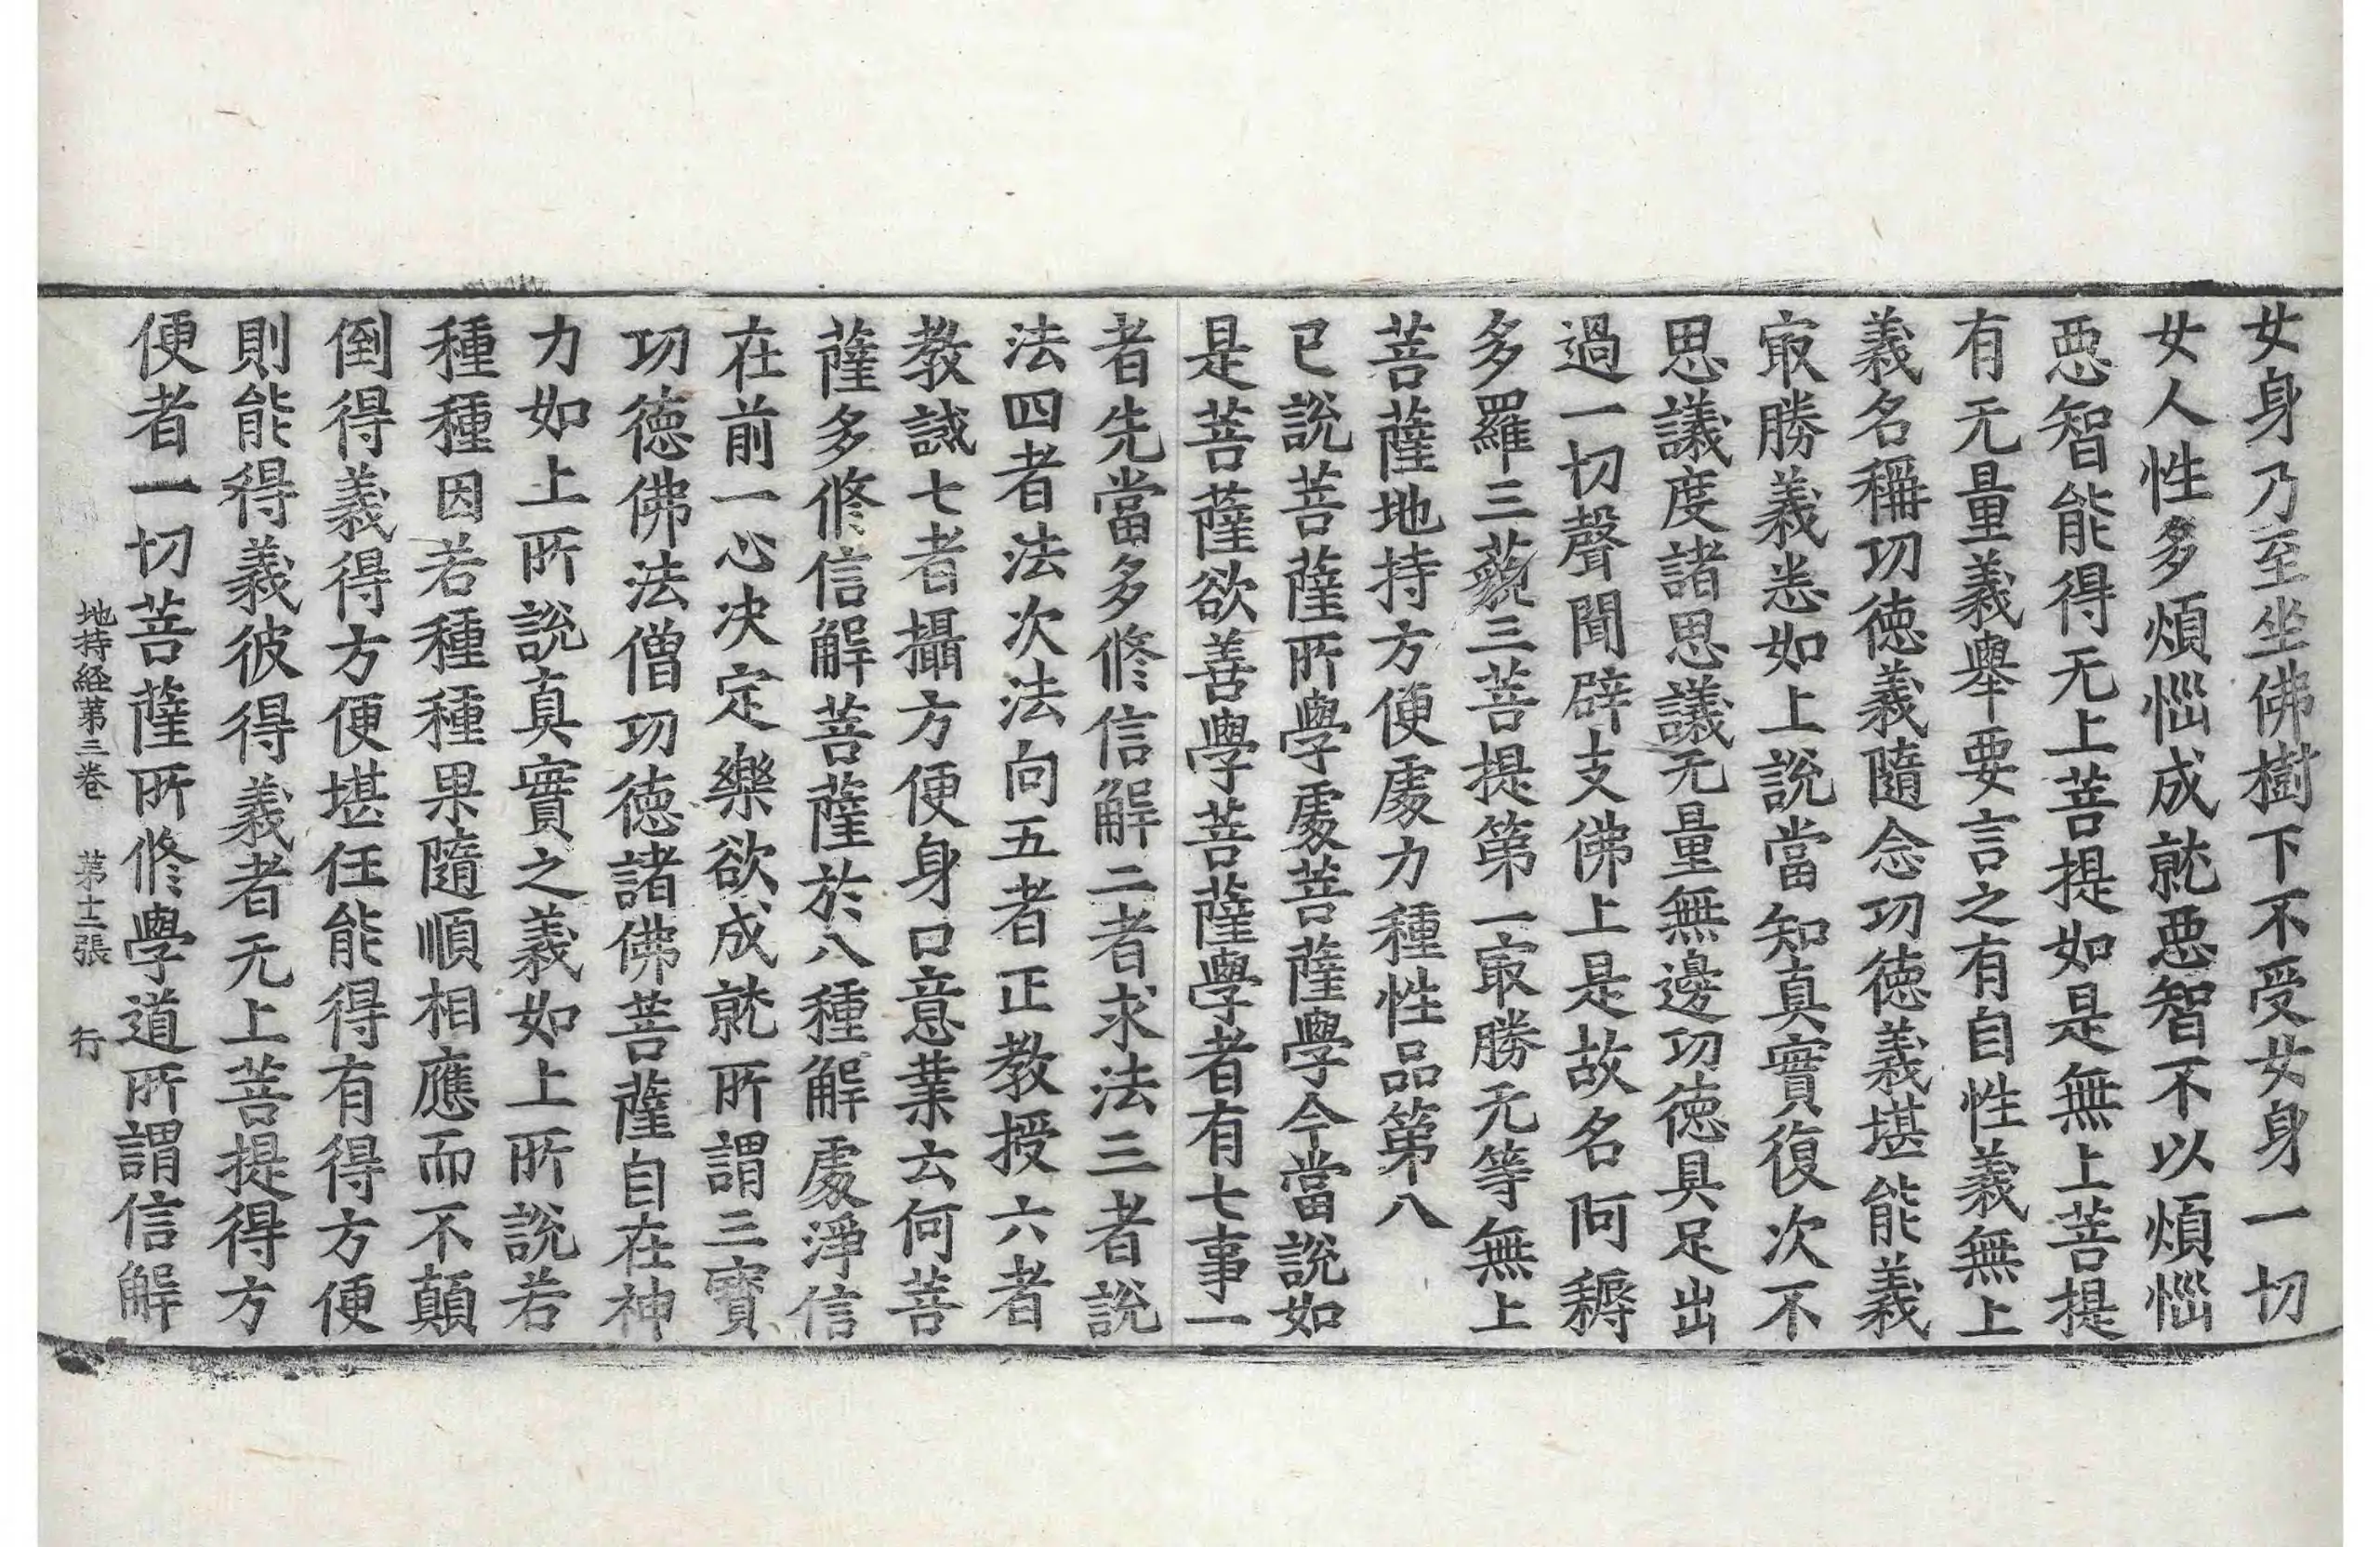 女身乃至坐佛樹下不受女身一切
女人性多煩惱成就惡智不以煩惱
惡智能得无上菩提如是無上菩提
有无量義舉要言之有自性義無上
義名稱功德義隨念功德義堪能義
㝡勝義悉如上說當知真實復次不
思議度諸思議无量無邊功德具足出
過一切聲聞辟支佛上是故名阿耨
多羅三藐三菩提第一㝡勝无等無上
菩薩地持方便處力種性品第八
已說菩薩所學處菩薩學今當說如
是菩薩欲善學菩薩學者有七事一
者先當多修信解二者求法三者說
法四者法次法向五者正教授六者
教誡七者攝方便身口意業云何菩
薩多修信解菩薩於八種解處淨信
在前一心决定樂欲成就所謂三寶
功德佛法僧功德諸佛菩薩自在神
力如上所說真實之義如上所說若
種種因若種種果隨順相應而不顛
倒得義得方便堪任能得有得方便
則能得義彼得義者无上菩提得方
便者一切菩薩所修學道所謂信解
地持経苐三巻 苐十二張 行